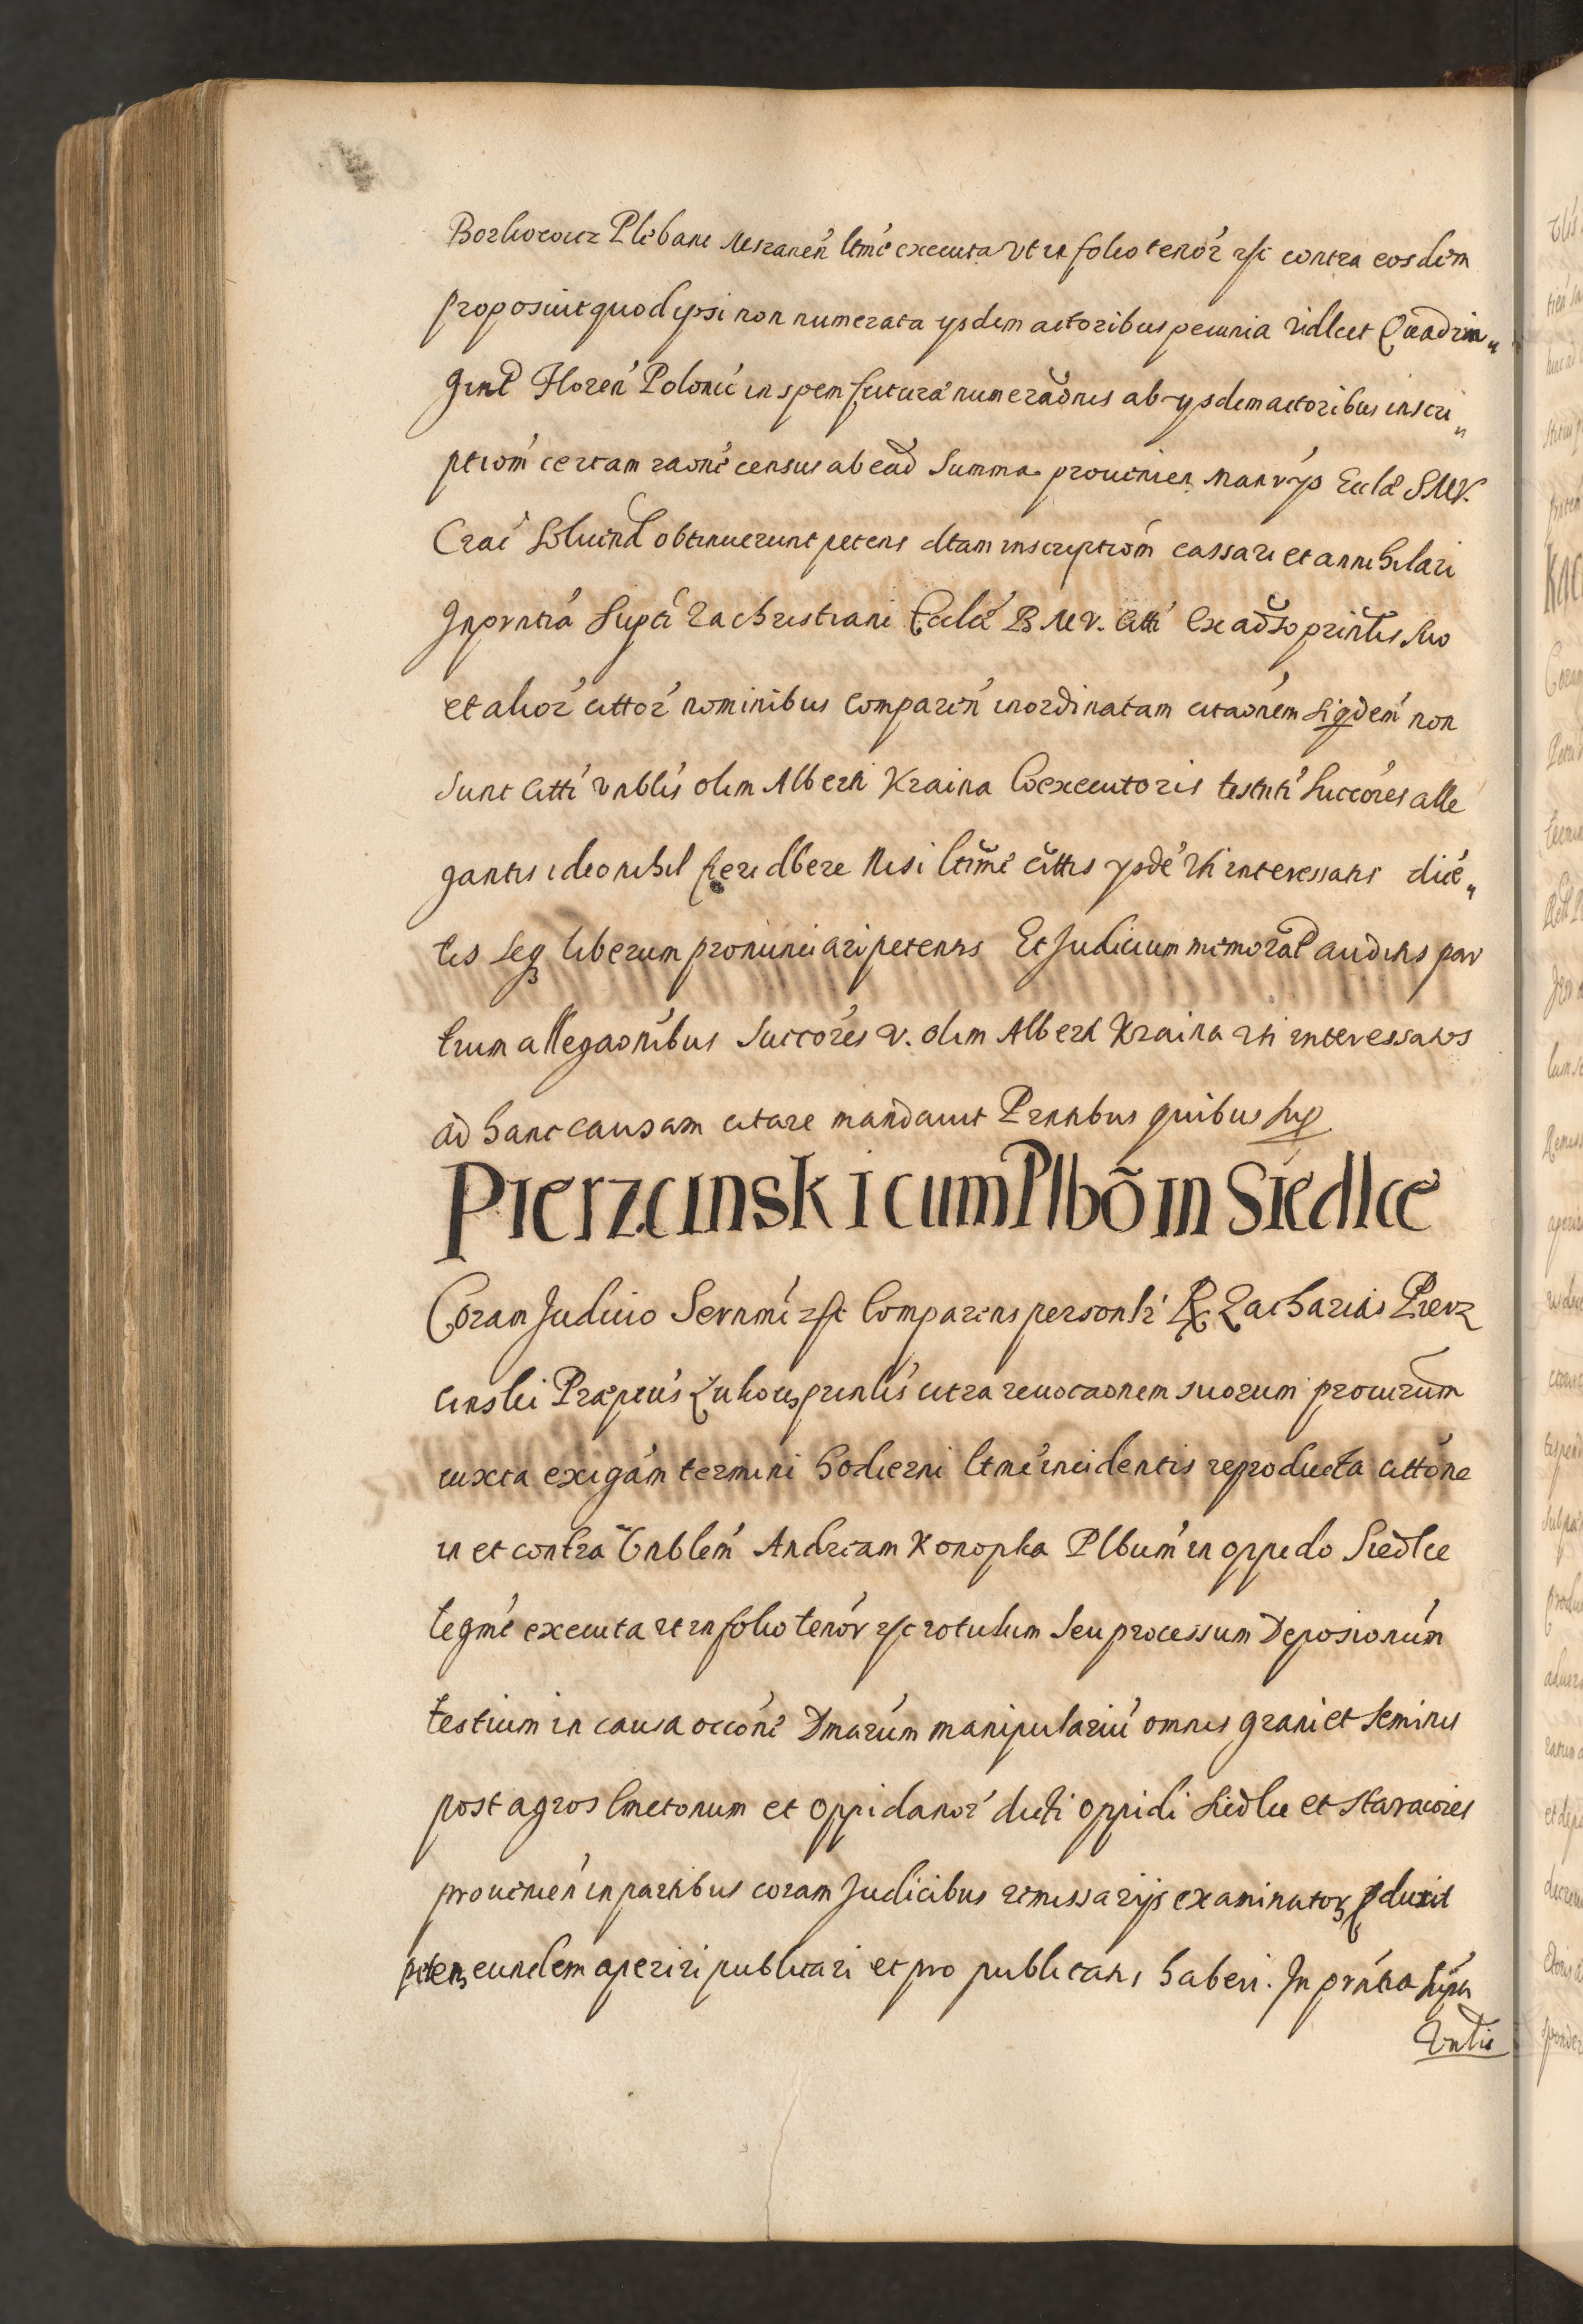 Borkowicz Plebani Mszanen̄ ltmē executa vt in folio tenor̄ rsc̄ contra eosdem
proposuit quod ipsi non numerata ysdem actoribus pecunia vidlcet Quadrin„
gint Floren̄ Polonic̄ in spem futurae numeraōnis ab ysdem actoribus inscri„
ptiom̄ certam raōne census ab ead̄ Summa prouenien Manrÿs Eccla͞e S.M.V.
Crac̄ Soluend obtinuerunt petens dtam inscriptiom̄ cassari et annihilari
In prntia Supti Zachristiani Eccla͞e B.M.V. Citti ex aduso prinlis suo
et alior̄ cittor̄ nominibus comparen̄ inordinatam citaōnem siqdem̄ non
sunt Citti vnblis olim Alberti Kraina Coexecutoris testnti Succōres alle
gantis ideo nihil fieri dbere Nisi ltīme cittis ysdē rti interessatis dicē„
tis seq liberum pronunciari petentis Et Judicium memorat auditis par
tium allegaonibus Succōres v. olim Alberti Kraina rti interessatos
ad hanc causam citare mandauit Prntibus quibus sup
Pierzcinski cum Plbõ in Siedlce
Coram Judicio Sernmī rsc̄ Comparens personlr̄ R Zacharias Pierz
cinski Praeptus Łukouẜprinlis citra reuocaonem suorum procurum̄
iuxta exigām termini hodierni ltmē incidentis reproducta cittōne
in et contra Vnblem̄ Andream Konopka Plbum̄ in oppido Siedlce
legmē executa vt in folio tenōr rsc rotulum seu processum Deposionum̄
testium in causa occōne Dmarum̄ manipulariū omnis grani et seminis
post agros Cmetonum et oppidanor̄ dicti oppidi Siedlce et Starawies
prouenien̄ in partibus coram Judicibus remissarÿs examinator pduxit
peten eundem aperiri publicari et pro publicatis haberi. In prn̄tia supti
Vnblis